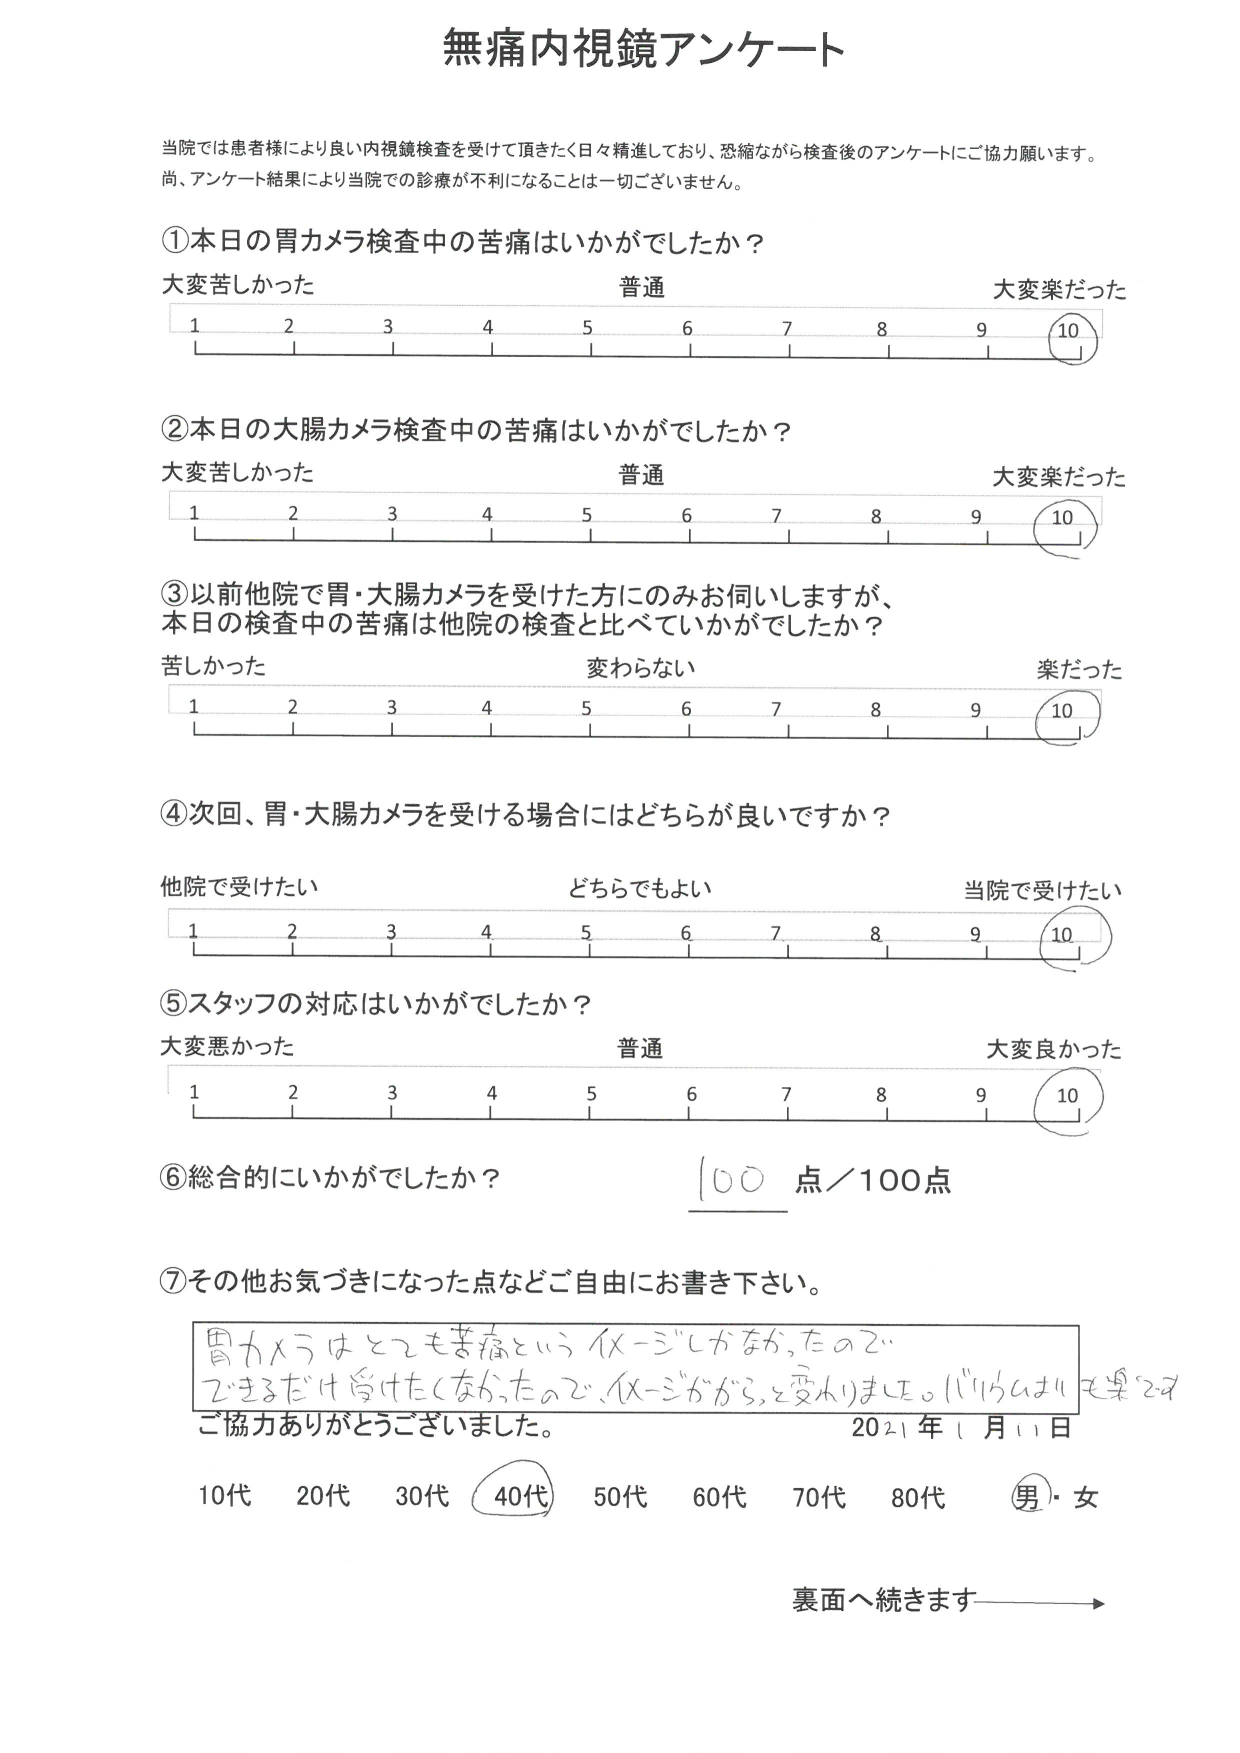 無痛内視鏡アンケート
当院では患者様により良い内視鏡検査を受けて頂きたく日々精進しており、恐縮ながら検査後のアンケートにご協力願います。
尚、アンケート結果により当院での診療が不利になることは一切ございません。
①本日の胃カメラ検査中の苦痛はいかがでしたか？
大変苦しかった 普通 大変楽だった
1 2 3 4 5 6 7 8 9 10
②本日の大腸カメラ検査中の苦痛はいかがでしたか？
大変苦しかった 普通 大変楽だった
1 2 3 4 5 6 7 8 9 10
③以前他院で胃・大腸カメラを受けた方にのみお伺いしますが、
本日の検査中の苦痛は他院の検査と比べていかがでしたか？
苦しかった 変わらない 楽だった
1 2 3 4 5 6 7 8 9 10
④次回、胃・大腸カメラを受ける場合にはどちらが良いですか？
他院で受けたい どちらでもよい 当院で受けたい
1 2 3 4 5 6 7 8 9 10
⑤スタッフの対応はいかがでしたか？
大変悪かった 普通 大変良かった
1 2 3 4 5 6 7 8 9 10
⑥総合的にいかがでしたか？ 100 点／100点
⑦その他お気づきになった点などご自由にお書き下さい。
胃カメラはとても苦痛というイメージしかなかったので
できるだけ受けたくなかったので、イメージががらっと変わりました。バリウムよりも楽です
ご協力ありがとうございました。 2021年 1月 11日
10代 20代 30代 40代 50代 60代 70代 80代 男・女
裏面へ続きます